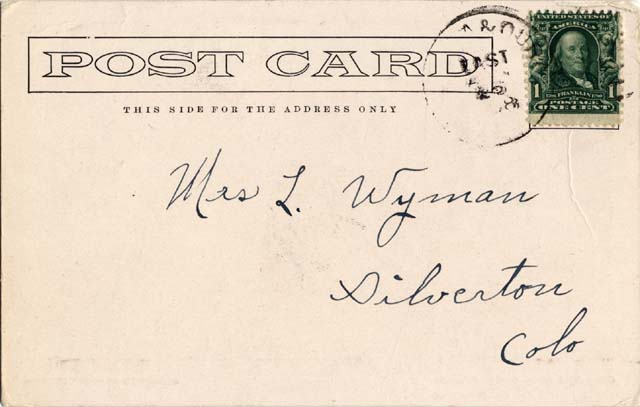 POST CARD
THIS SIDE FOR THE ADDRESS ONLY
EAST
UNITED STATES OF
AMERICA
1 1
FRANKLIN
POSTAGE
ONE CENT
Mrs L. Wyman
Silverton
Colo